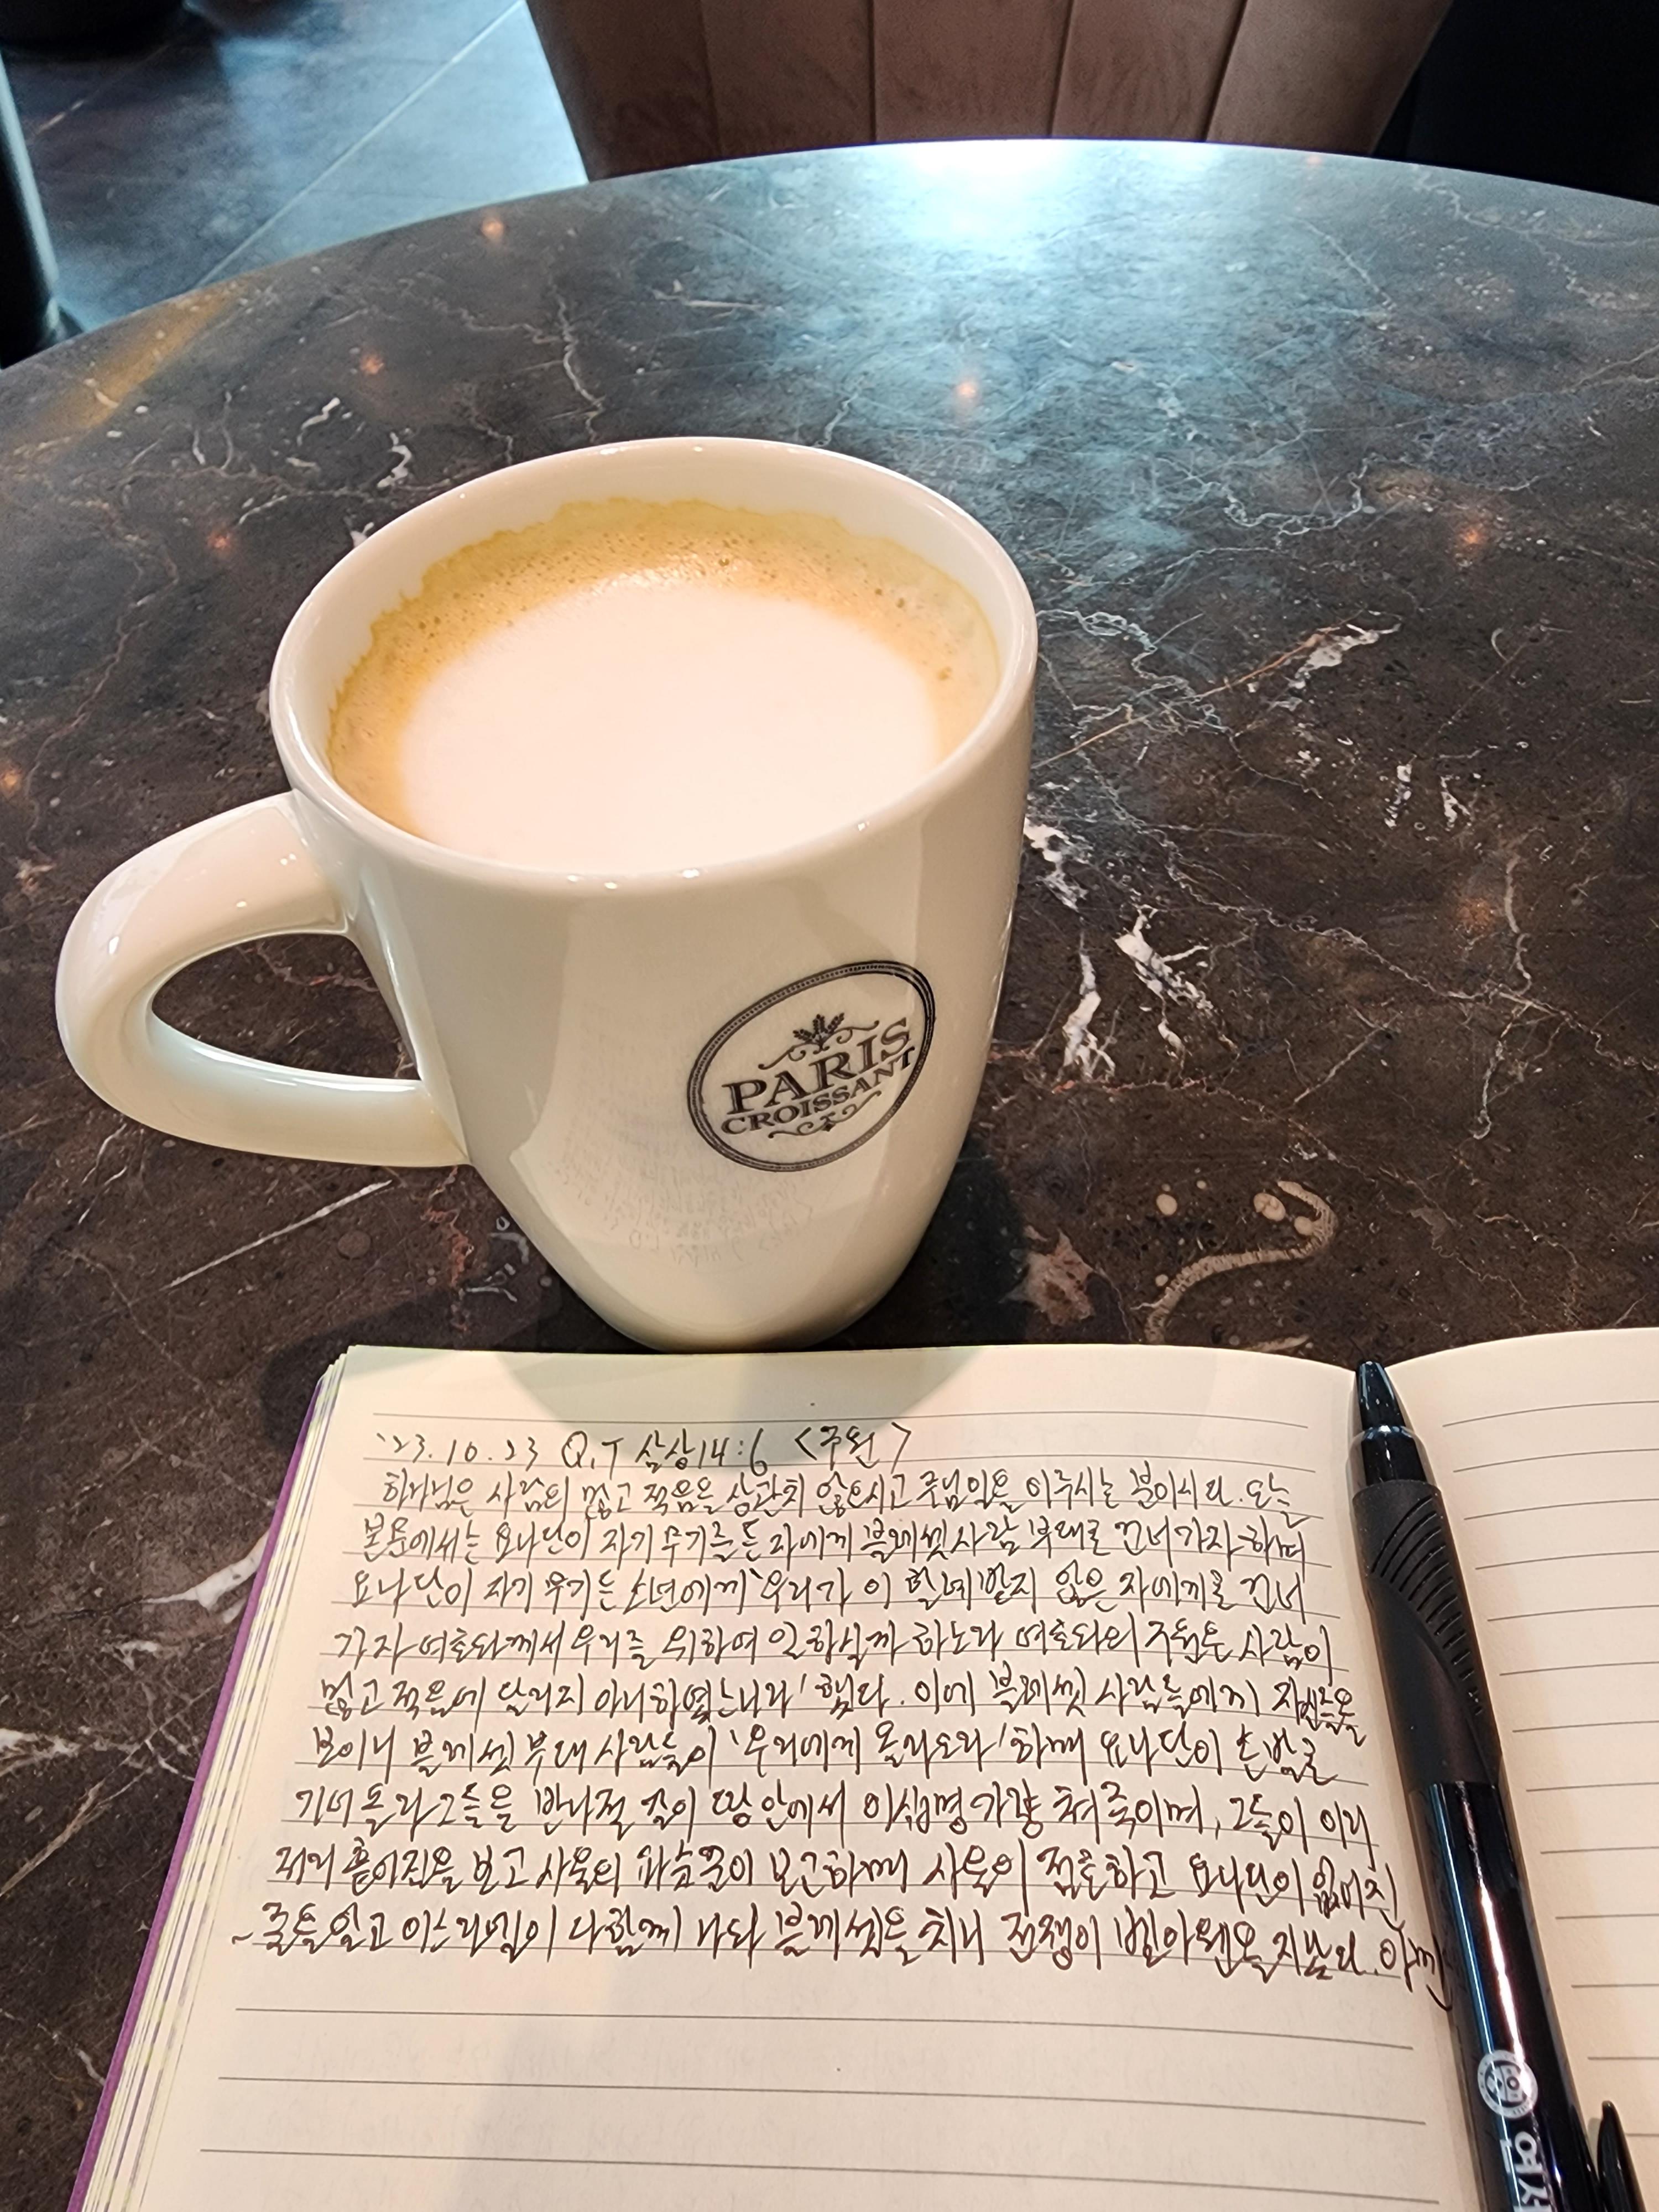 PARIS
CROISSANT
'23.10.23 Q.T 삼상14:6 <구원>
하나님은 사람의 많고 적음을 상관치 않으시고 구원을 이루시는 분이시라. 오늘
본문에서는 요나단이 자기 무기를 든 자에게 블레셋 사람 부대로 건너가자 하며
요나단이 자기 무기 든 소년에게 '우리가 이 할례 받지 않은 자에게로 건너
가자 여호와께서 우리를 위하여 일하실까 하노라 여호와의 구원은 사람이
많고 적음에 달리지 아니하였느니라' 했다. 이에 블레셋 사람들에게 자신들을
보이니 블레셋 부대 사람들이 '우리에게 올라오라' 하매 요나단이 손발로
기어 올라 그들을 반나절 갈이 땅 안에서 이십명 가량 쳐죽이며, 그들이 이리
저리 흩어짐을 보고 사울의 파숫꾼이 보고하매 사울이 점호하고 요나단이 없어진
~줄을 알고 이스라엘이 다함께 나와 블레셋을 치니 전쟁이 벧아웬을 지났다. 아멘
연세